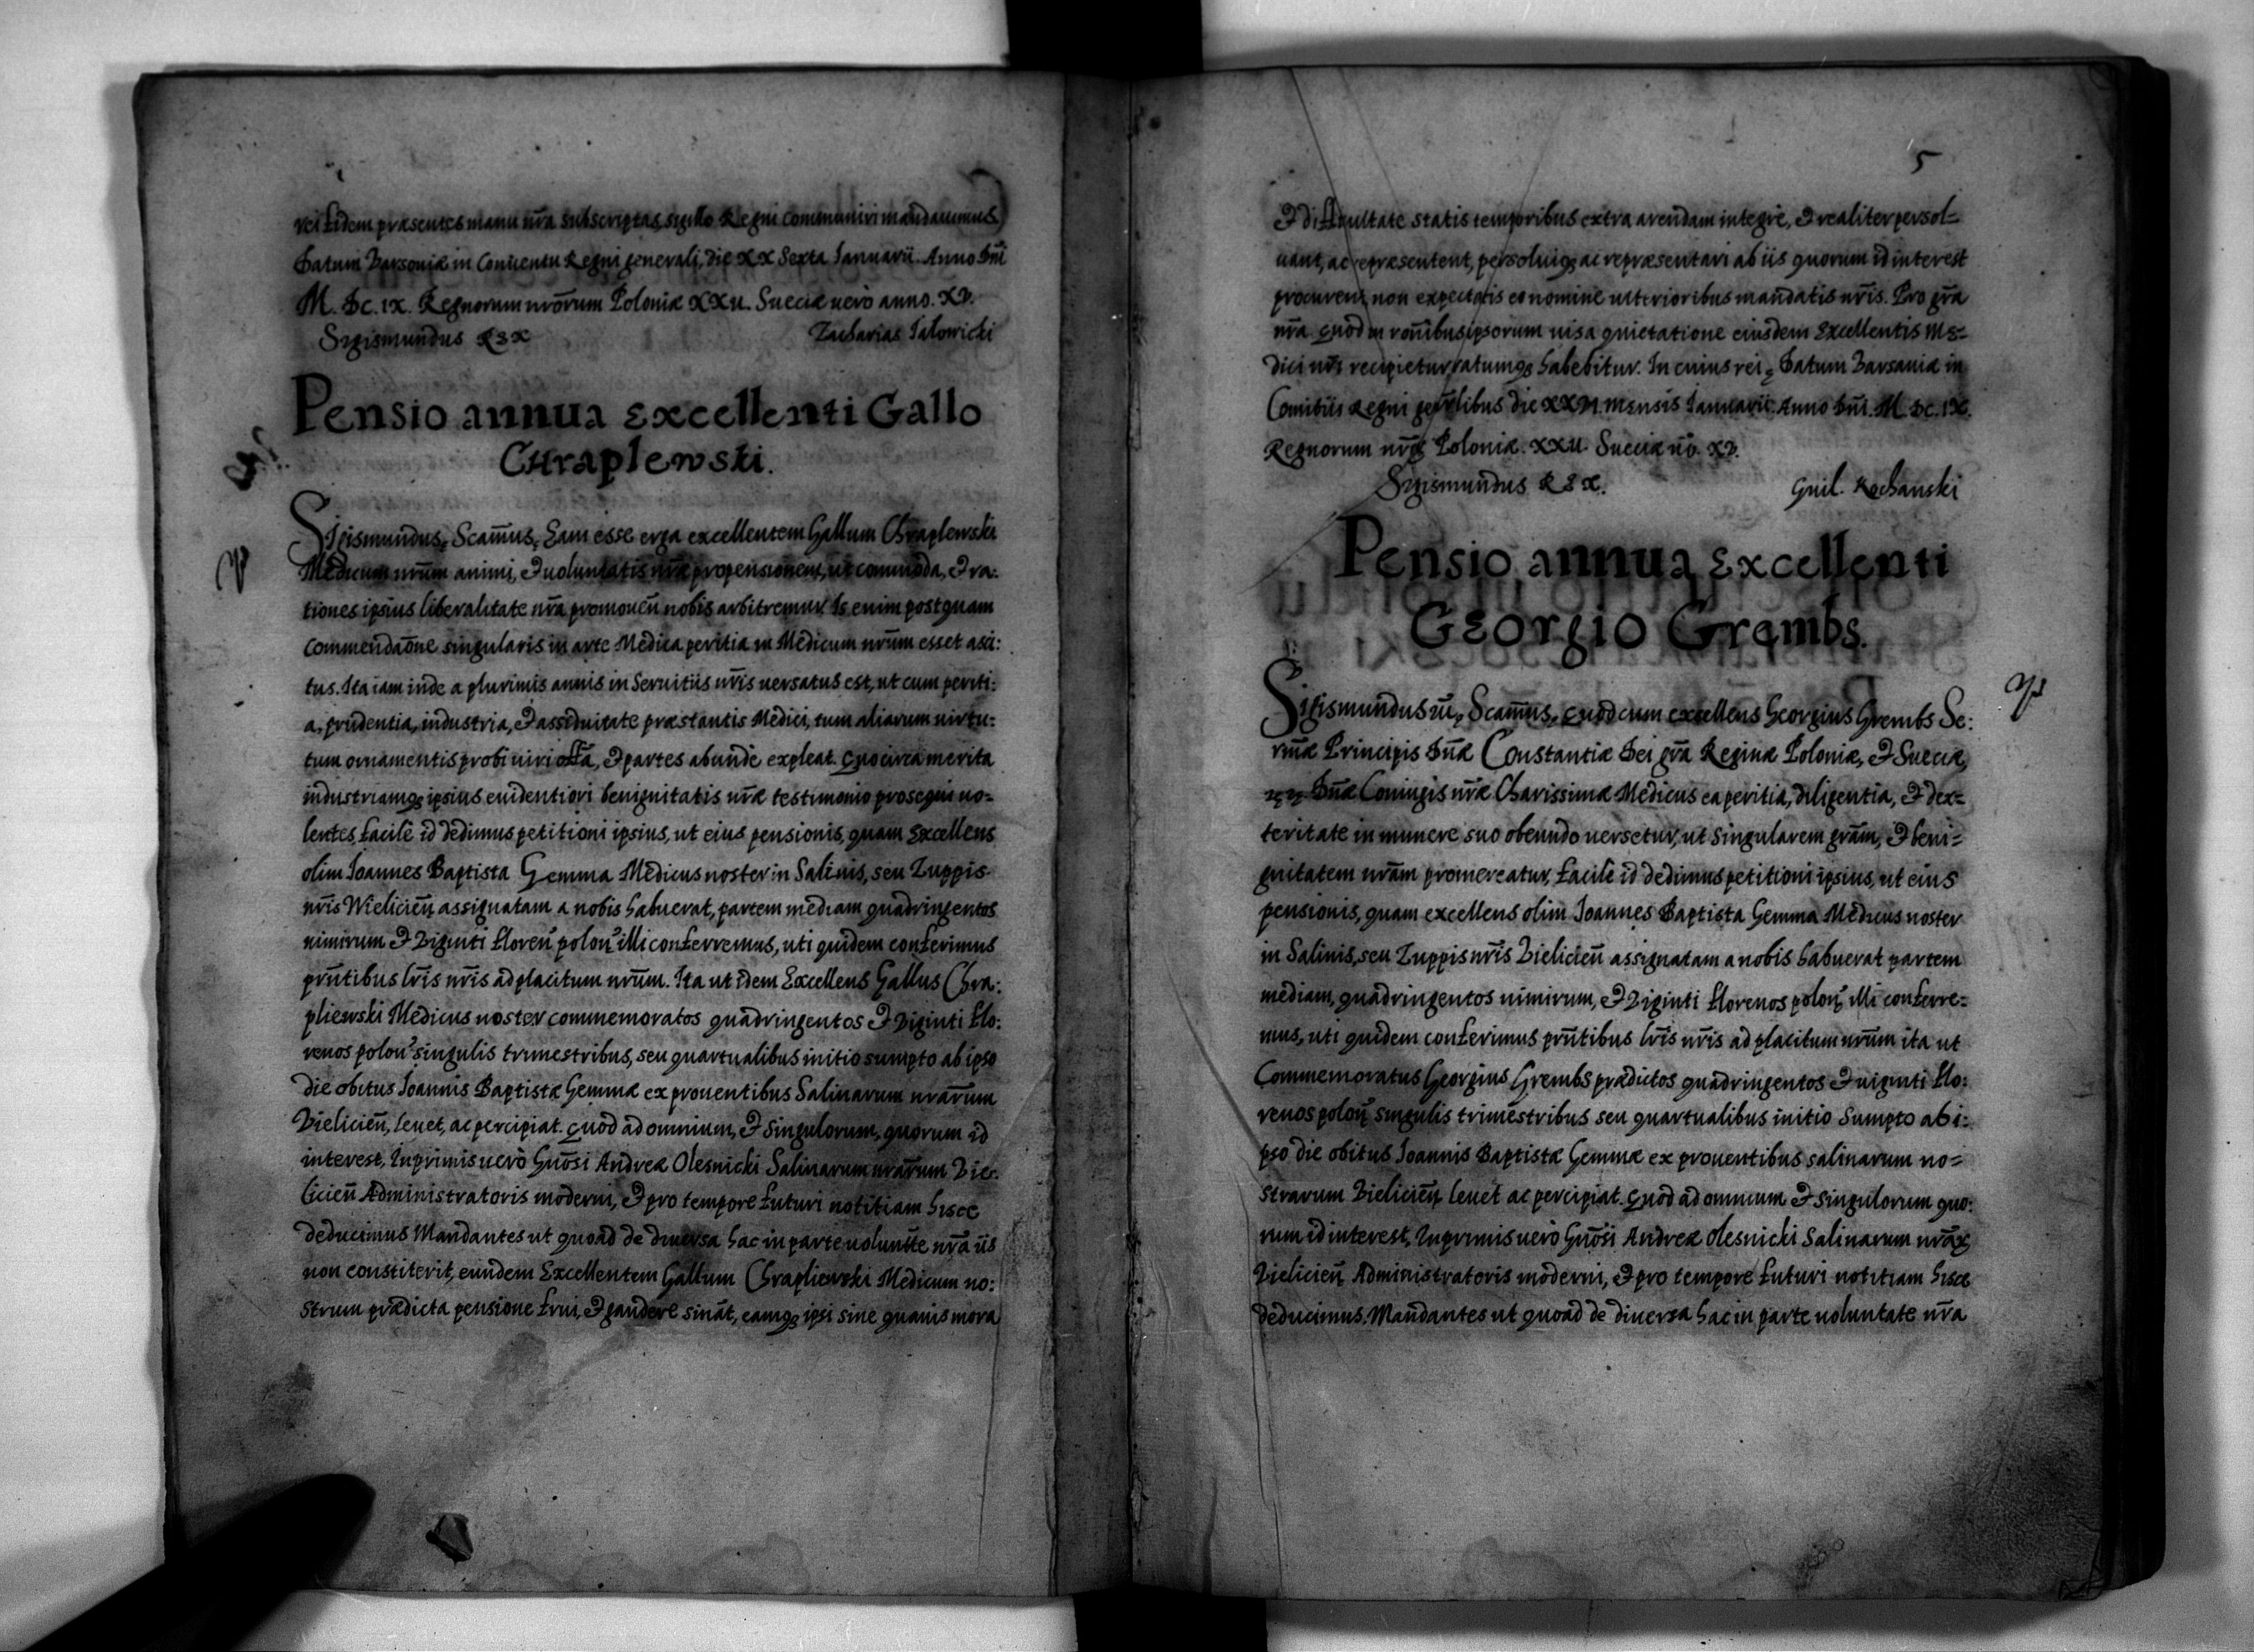 rei fidem præsentes manu nr̃a subscriptas, sigillo Regni communiri mandauimus.
Datum Varsouiæ in Conuentu Regni generali, die XX Sexta Ianuarii. Anno Dñi
M. DC. IX. Regnorum nrõrum Poloniæ XXII. Sueciæ uerò anno. XV.
Sigismundus REX Zacharias Jałowicki
Pensio annua Excellenti Gallo
Chraplewski.
Sigismundus, Scam̃us, Eam esse erga excellentem Gallum Chraplewski
Medicum nrũm animi, & uoluntatis nr̃æ propensionem, ut commoda, & ra:
tiones ipsius liberalitate nr̃a promouen̄ nobis arbitremur. Is enim postquam
commendaõne singularis in arte Medica peritiæ in Medicum nrũm esset asci:
tus. Ita iam inde a plurimis annis in Seruitiis nrĩs uersatus est, ut cum periti:
a, prudentia, industria, & assiduitate præstantis Medici, tum aliarum uirtu:
tum ornamentis probi uiri offã, & partes abundè expleat. Quocirca merita
industriamq; ipsius euidentiori benignitatis nr̃æ testimonio prosequi uo=
lentes, facilè id dedimus petitioni ipsius, ut eius pensionis, quam Excellens
olim Joannes Baptista Gemma Medicus noster in Salinis, seu Zuppis
nrĩs Wielicien̄ assignatam a nobis habuerat, partem mediam quadringentos
nimirum & Viginti floren̄ polon̄ illi conferremus, uti quidem conferimus
prñtibus lrĩs nrĩs ad placitum nrũm. Ita ut idem Excellens Gallus Chra:
pliewski Medicus noster commemoratos quadringentos & Viginti flo:
renos polon̄ singulis trimestribus, seu quartualibus initio sumpto ab ipso
die obitus Joannis Baptistæ Gemmæ ex prouentibus Salinarum nrãrum
Vielicien̄, leuet, ac percipiat. Quod ad omnium, & singulorum, quorum id
interest, Inprimis uerò Gnõsi Andreæ Olesnicki Salinarum nrãrum Vie:
licien̄ Administratoris moderni, & pro tempore futuri notitiam hisce
deducimus Mandantes ut quoad de diuersa hac in parte uoluntãte nr̃a iis
non constiterit, eundem Excellentem Gallum Chrapliewski Medicum no:
strum prædicta pensione frui, & gaudere sinãt, eamq; ipsi sine quauis mora
5
& difficultate statis temporibus extra arendam integrè, & realiter persol=
uant, ac repræsentent, persoluiq; ac repræsentari ab iis quorum id interest
procurent non expectatis eo nomine ulterioribus mandatis nrĩs. Pro gr̃a
nr̃a quod in ronĩbus ipsorum uisa quietatione eiusdem Excellentis Me=
dici nrĩ recipietur ratumq; habebitur. In cuius rei, Datum Varsauiæ in
Comitiis Regni gen̄rlibus die XXVI mensis Ianuarii. Anno Dñi. M. DC. IX.
Regnorum nrõ⁊ Poloniæ. XXII. Sueciæ uõ. XV.
Sigismundus REX. Guil. Kochanski
Pensio annua Excellenti
Georgio Grembs.
Sigismundus III, Scam̃us, quod cum excellens Georgius Grembs Se:
rmæ Principis Dñæ Constantiæ Dei gr̃a Reginæ Poloniæ, & Sueciæ,
Dñæ Coniugis nr̃æ Charissimæ Medicus ea peritia, diligentia, & dex=
teritate in munere suo obeundo uersetur, ut Singularem grãm, & beni=
gnitatem nrãm promereatur, facilè id dedimus petitioni ipsius, ut eius
pensionis, quam excellens olim Joannes Baptista Gemma Medicus noster
in Salinis, seu Zuppis nrĩs Vielicien̄ assignatam a nobis habuerat partem
mediam, quadringentos nimirum, & Viginti florenos polon̄ illi conferre=
mus, uti quidem conferimus prñtibus lrĩs nrĩs ad placitum nrũm ita ut
Commemoratus Georgius Grembs prædictos quadringentos & uiginti flo:
renos polon̄ singulis trimestribus seu quartualibus initio Sumpto ab i:
pso die obitus Joannis Baptistæ Gemmæ ex prouentibus salinarum no=
strarum Vielicien̄ leuet ac percipiat. Quod ad omnium & singulorum quo:
rum id interest, Inprimis uerò Gnõsi Andreæ Olesnicki Salinarum nrã⁊
Vielicien̄ Administratoris moderni, & pro tempore futuri notitiam hisce
deducimus. Mandantes ut quoad de diuersa hac in parte uoluntate nr̃a